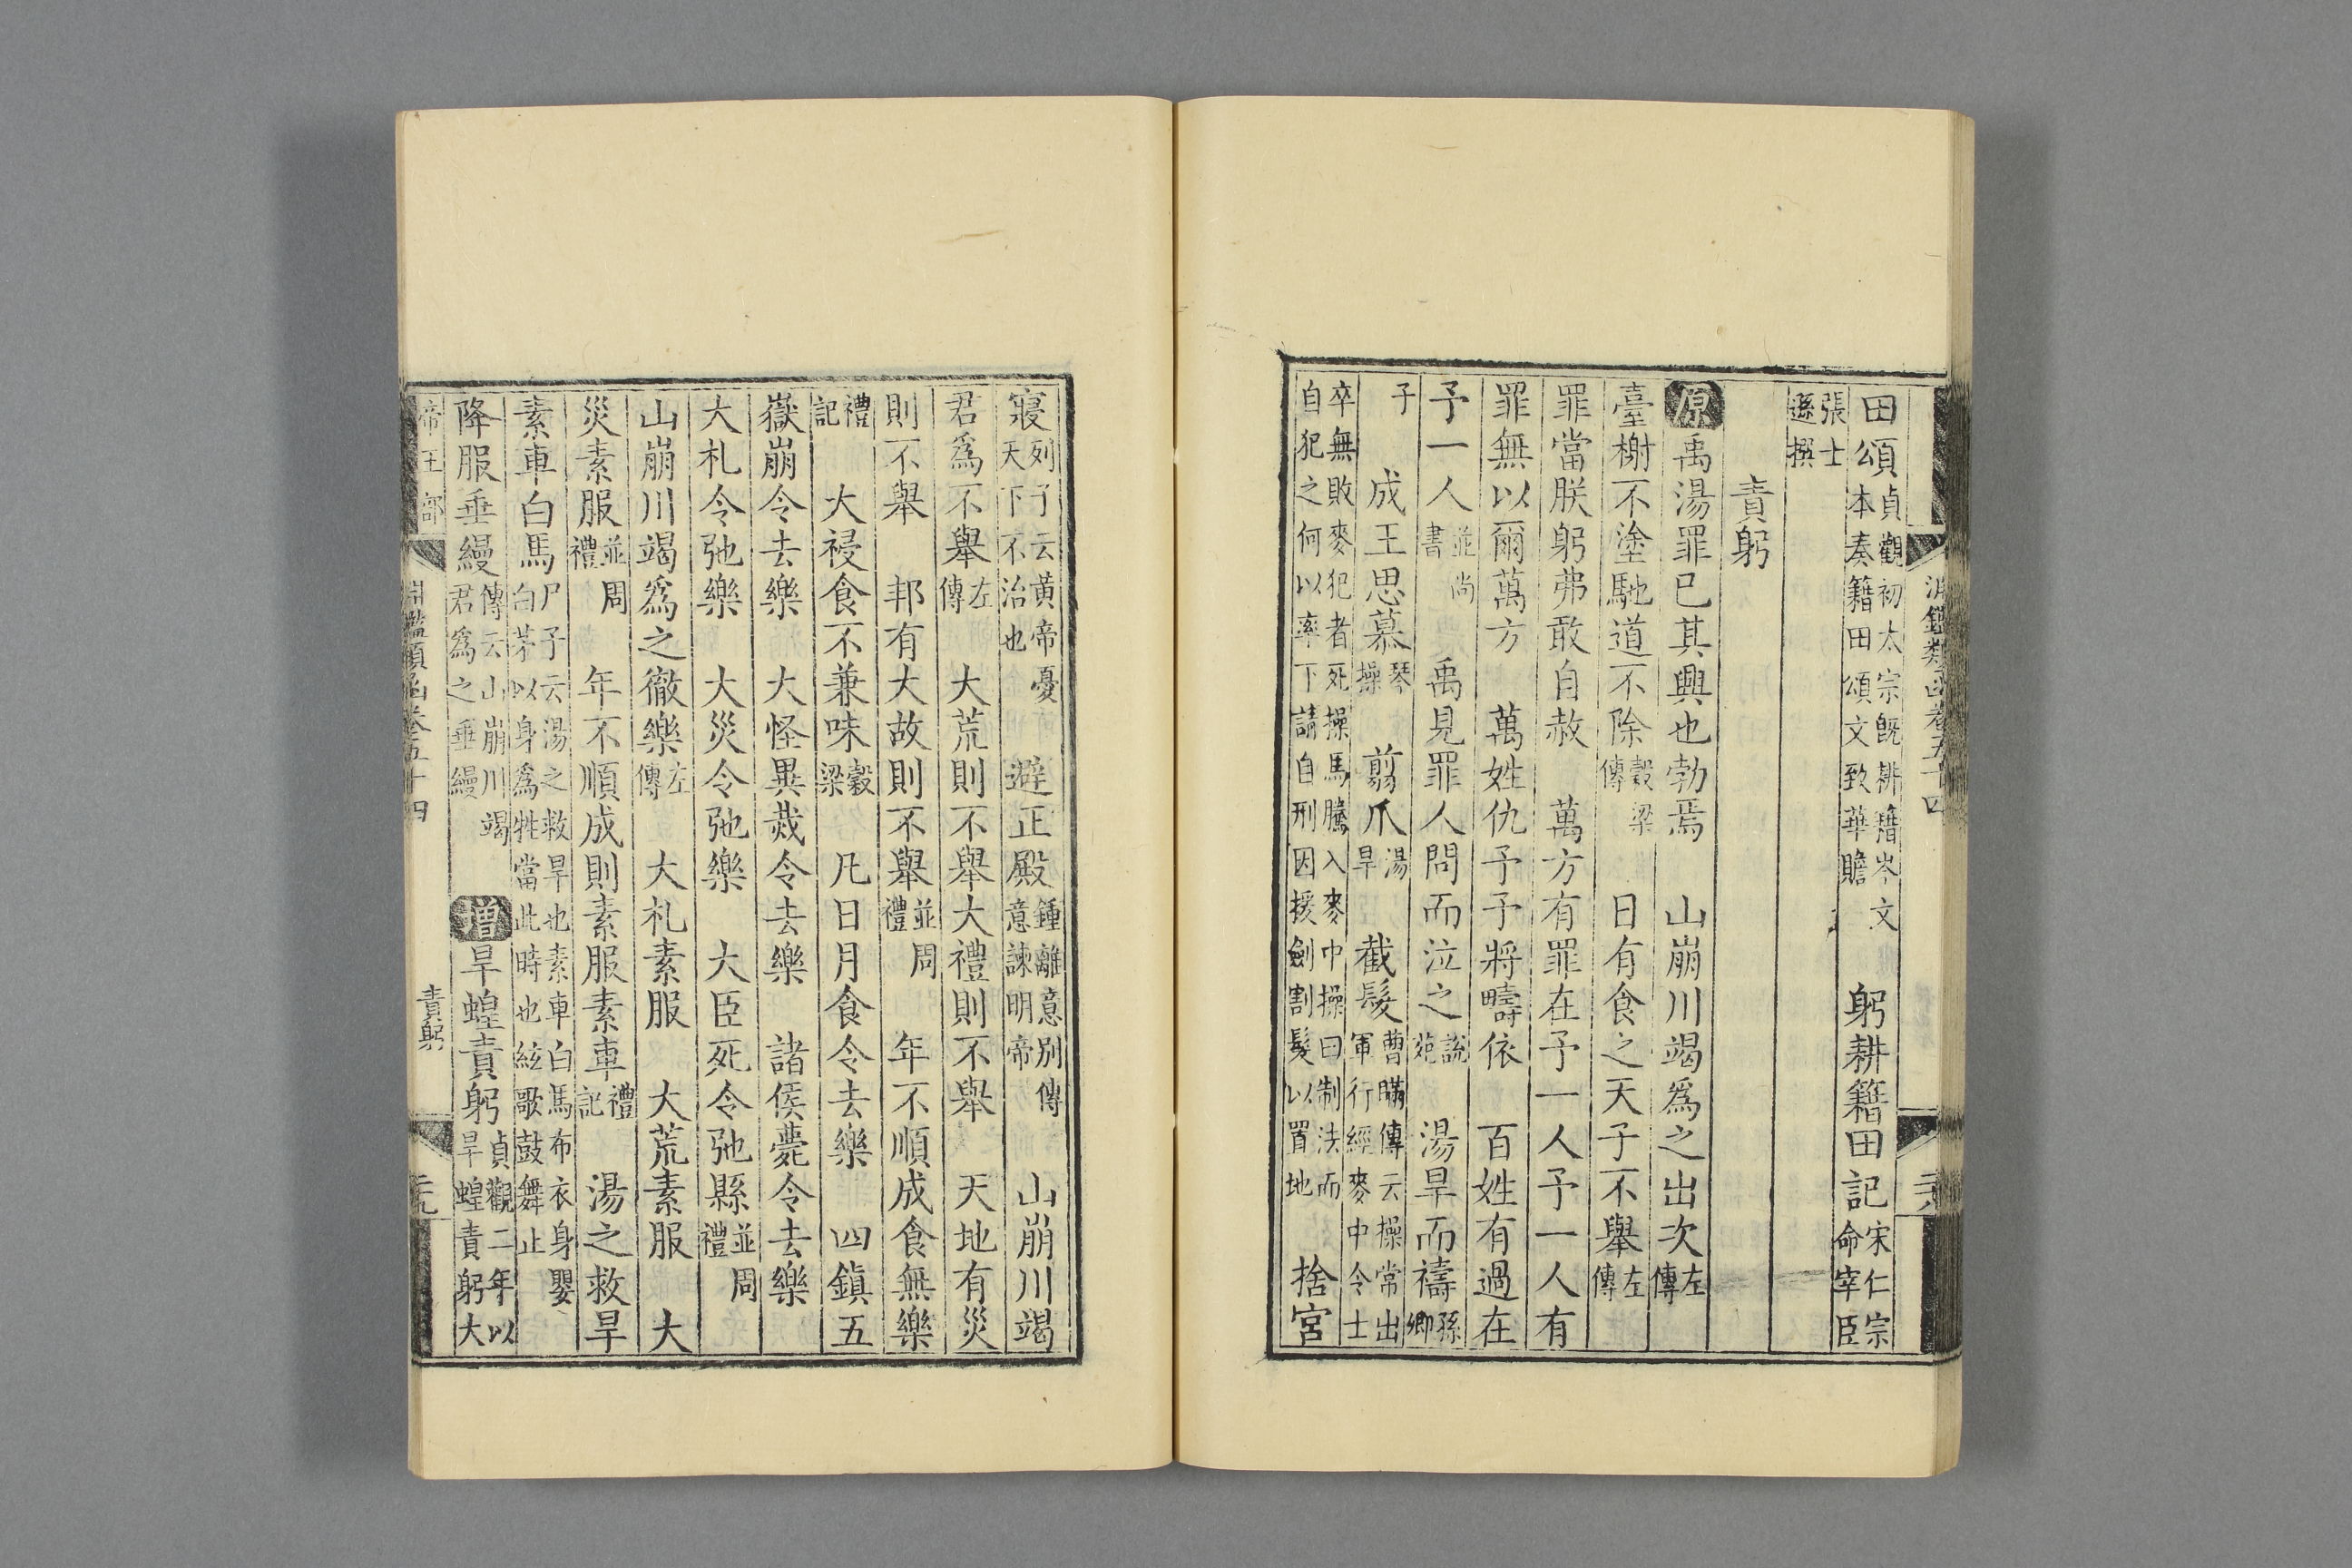 淵鑑類函卷五十四
田頌貞觀初太宗既耕籍岑文本奏籍田頌文致華贍 躬耕籍田記宋仁宗命宰臣
張士遜撰
責躬
原禹湯罪已其興也勃焉 山崩川竭爲之出次左傳
臺榭不塗馳道不除穀梁傳 日有食之天子不舉左傳
罪當朕躬弗敢自赦 萬方有罪在予一人予一人有
罪無以爾萬方 萬姓仇予予將疇依 百姓有過在
予一人並尚書 禹見罪人問而泣之說苑 湯旱而禱孫卿
子 成王思慕琴操 翦爪湯旱 截髮曹瞞傳云操常出軍行經麥中令士
卒無敗麥犯者死操馬騰入麥中操曰制法而自犯之何以率下請自刑因援劍割髮以置地 捨宮
寢列子云黃帝憂天下不治也 避正殿鍾離意別傳意諫明帝 山崩川竭
君爲不舉左傳 大荒則不舉大禮則不舉 天地有災
則不舉 邦有大故則不舉並周禮 年不順成食無樂
禮記 大祲食不兼味穀梁 凡日月食令去樂 四鎮五
嶽崩令去樂 大怪異烖令去樂 諸侯薨令去樂
大札令弛樂 大災令弛樂 大臣死令弛縣並周禮
山崩川竭爲之徹樂左傳 大札素服 大荒素服 大
災素服並周禮 年不順成則素服素車禮記 湯之救旱
素車白馬尸子云湯之救旱也素車白馬布衣身嬰白茅以身爲牲當此時也絃歌鼓舞止
降服乘縵傳云山崩川竭君爲之乘縵 增旱蝗責躬貞觀二年以旱蝗責躬大
帝王部
淵鑑類函卷五十四
責躬